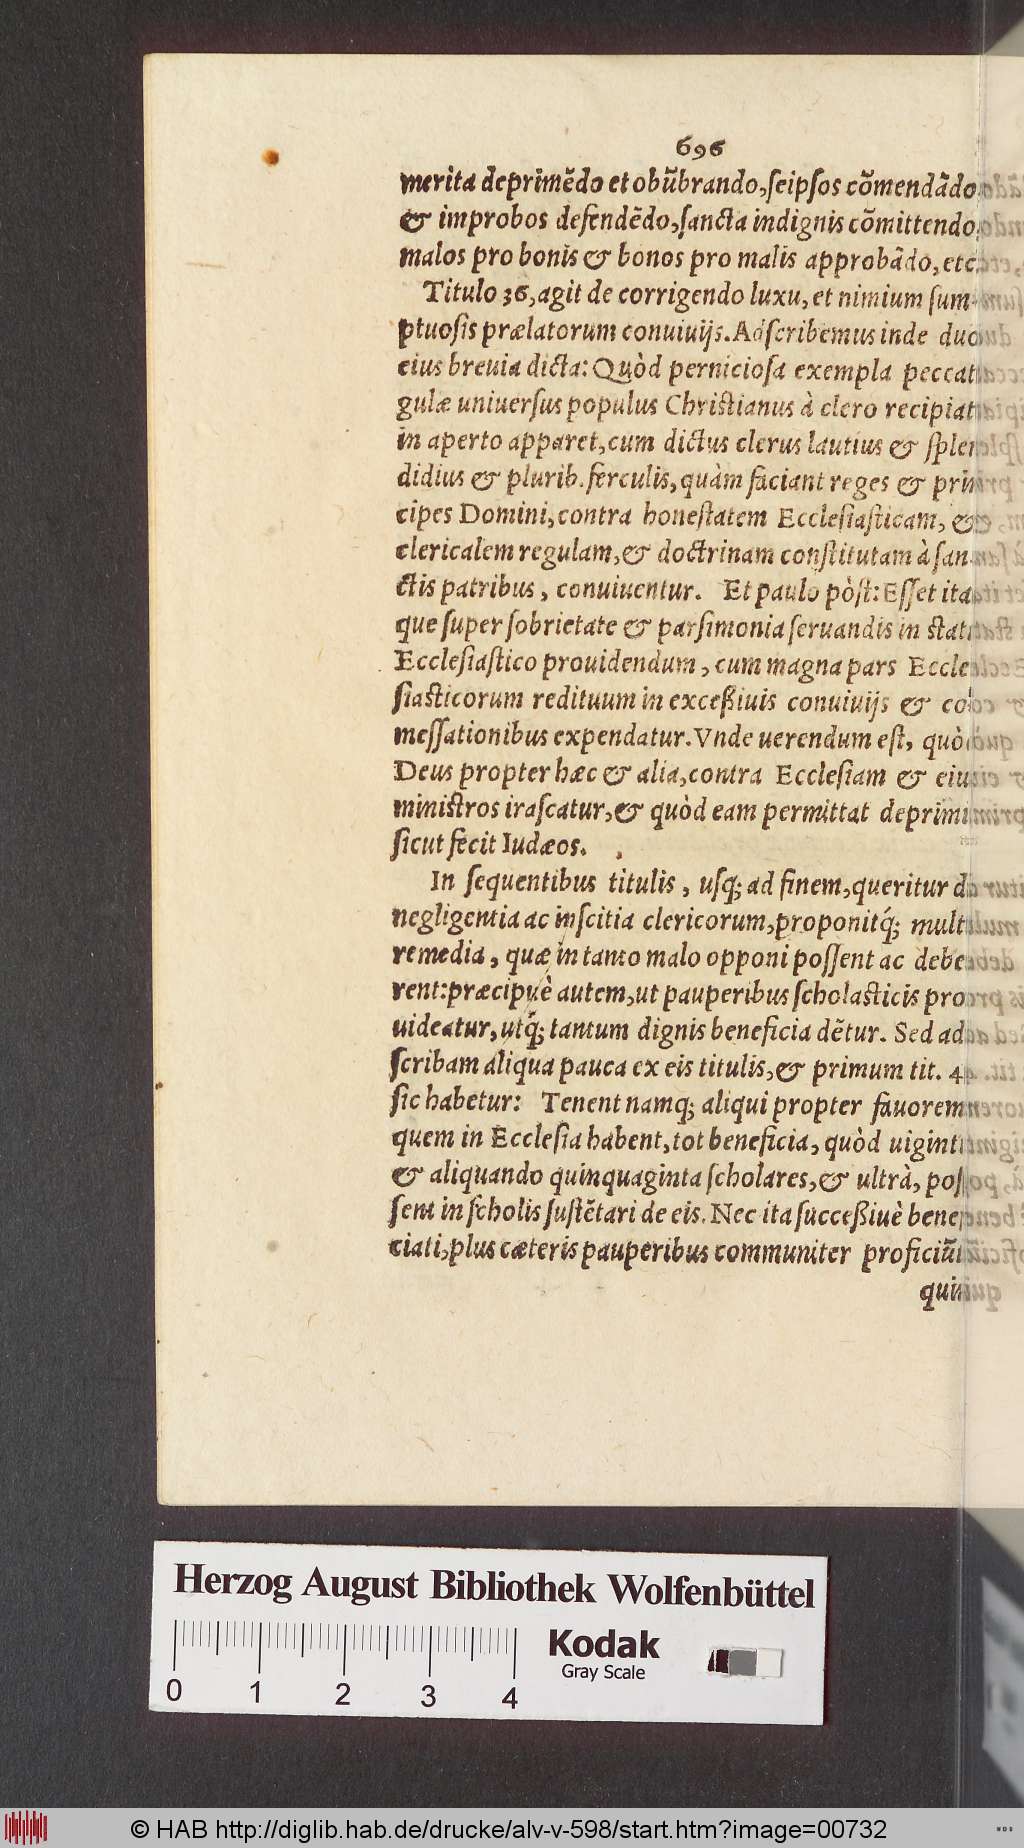 696
merita deprimẽdo et obũbrando, ſeipſos cõmendãdo
& improbos defendẽdo, ſancta indignis cõmittendo,
malos pro bonis & bonos pro malis approbãdo, etc.
Titulo 36, agit de corrigendo luxu, et nimium ſum-
ptuoſis prælatorum conuiuijs. Adſcribemus inde duo
eius breuia dicta: Quòd pernicioſa exempla peccati
gulæ uniuerſus populus Chriſtianus à clero recipiat,
in aperto apparet, cum dictus clerus lautius & ſplen
didius & plurib. ferculis, quàm faciant reges & prin
cipes Domini, contra honeſtatem Eccleſiaſticam, &
clericalem regulam, & doctrinam conſtitutam à ſan-
ctis patribus, conuiuentur. Et paulo pòſt: Eſſet ita
que ſuper ſobrietate & parſimonia ſeruandis in ſtatu
Eccleſiaſtico prouidendum, cum magna pars Eccle
ſiaſticorum redituum in exceßiuis conuiuijs & co
meſſationibus expendatur. Vnde uerendum eſt, quòd
Deus propter hæc & alia, contra Eccleſiam & eius
miniſtros iraſcatur, & quòd eam permittat deprimi
ſicut fecit Iudæos.
In ſequentibus titulis, uſq; ad finem, queritur de
negligentia ac inſcitia clericorum, proponitq́; multa
remedia, quæ in tanto malo opponi poſſent ac debe
rent: præcipuè autem, ut pauperibus ſcholaſticis pro
uideatur, utq́; tantum dignis beneficia dẽtur. Sed ad
ſcribam aliqua pauca ex eis titulis, & primum tit. 4
ſic habetur: Tenent namq; aliqui propter fauorem
quem in Eccleſia habent, tot beneficia, quòd uiginti
& aliquando quinquaginta ſcholares, & ultrà, poſ
ſent in ſcholis ſuſtẽtari de eis. Nec ita ſucceßiuè benefi
ciati, plus cæteris pauperibus communiter proficiũt
quin
Herzog August Bibliothek Wolfenbüttel
Kodak
Gray Scale
0 1 2 3 4
© HAB http://diglib.hab.de/drucke/alv-v-598/start.htm?image=00732